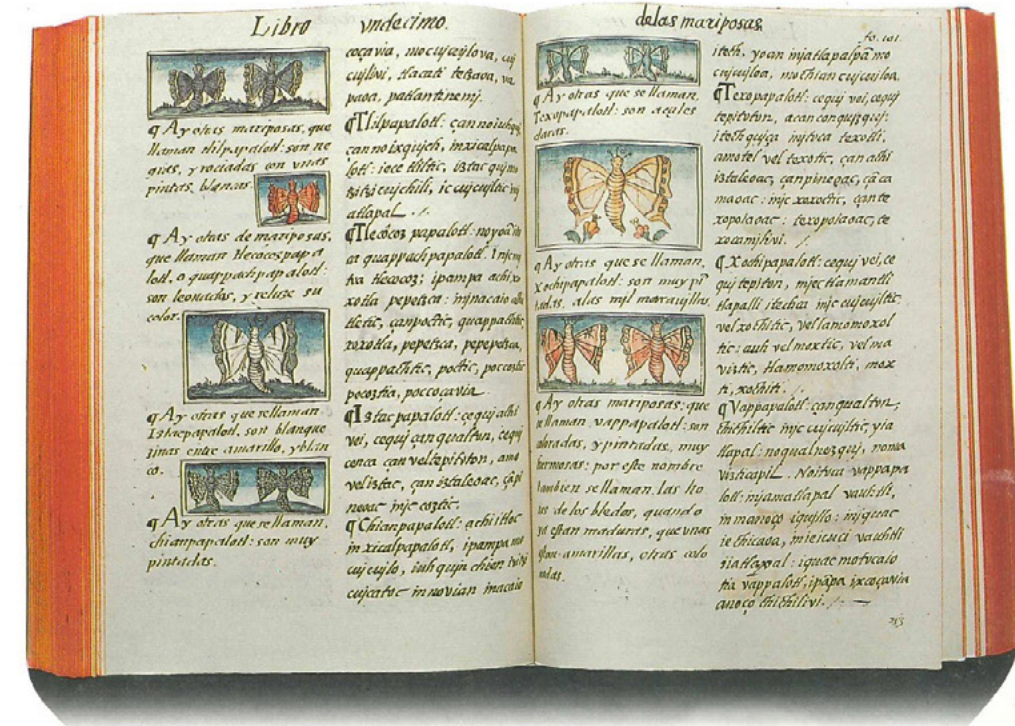 Libro vndecimo.
¶ Ay otras mariposas, que
llaman tlilpapalotl: son ne
gras, y rociadas con vnas
pintas, blancas.
¶ Ay otras de mariposas,
que llaman tlecocozpapa
lotl, o quappachpapalotl:
son leonadas, y reluze su
color.
¶ Ay otras que se llaman
Iztacpapalotl. son blanque
zinas entre amarillo, y blan
co.
¶ Ay otras que se llaman,
chianpapalotl: son muy
pintadas.
cocavia, mocujcujlova, cuj
cujlivi, tlacati
patlantinemj.
¶ Tlilpapalotl: çan no iuhquj,
can no ixqujch, in xicalpapa
lotl: iece tliltic, iztac qujmo
tzitzicujchili, ic cujcujltic in
atlapal.
¶ Tlecocoz papalotl: no yoã
ca quappachpapalotl. Injc mj
toa tlecocoz; ipampa achi xo
xotla pepetzca: injnacaio
tletic, canpoctic, quappachtic,
xoxotla, pepetzca, pepepetzca,
quappachtic, poctic, poccoztic
pocoztia, poccocavia.
¶ Iztac papalotl: cequj achi
vei, cequj çan qualtun, cequj
cenca can vel tepititon, amo
vel iztac, çan iztaleoac, çã pi
neoac injc coztic.
¶ Chianpapalotl: achi ittoc
in xicalpapalotl, ipampa mo
cujcujlo, iuhqujn chien
cujcatoc in novian inacaio
delas mariposas
fo. 101.
¶ Ay otras que se llaman,
Texopapalotl: son açules
claras.
¶ Ay otras que se llaman,
xochipapalotl: son muy pĩ
tadas, alas mil marauillas.
¶ Ay otras mariposas: que
se llaman vappapalotl: son
coloradas, y pintadas, muy
hermosas: por este nombre
tambien se llaman. las ho
jas de los bledos, quando
ya estan maduras, que vnas
estan amarillas, otras colo
radas.
itech. yoan injatlapalpã mo
cujcujloa, mochian cujcujloa.
¶ Texopapalotl: cequj vei, cequj
tepitoton, acan conqujzquj:
itech qujça injtoca texotli,
amo tel vel texotic, çan achi
iztaleoac, çan pineoac, cã ca
maoac: injc xoxoctic, çan te
xopolaoac: texopolaoac, te
xocamjlivi.
¶ Xochipapalotl: cequj vei, ce
quj tepiton, mjectlamantli
tlapalli itechca: injc cujcujltic
vel xochitic, vel lamomoxol
tic: auh vel moxtic, vel ma
viztic, tlamomoxolti, mox
ti, xochiti.
¶ Vappapalotl: çan qualton,
chichiltic injc cujcujltic, yia
tlapal: no qualnezquj, noma
vizticapil. No itoca vappapa
lotl: injamatlapal vauhtli,
in manoço iquillo: injquac
ie chicaoa, in ie icuci vauhtli
iiatlapal: iquac motocaio
tia vappalotl, ipãpa ixcoçavia
anoço chichilivi.
213